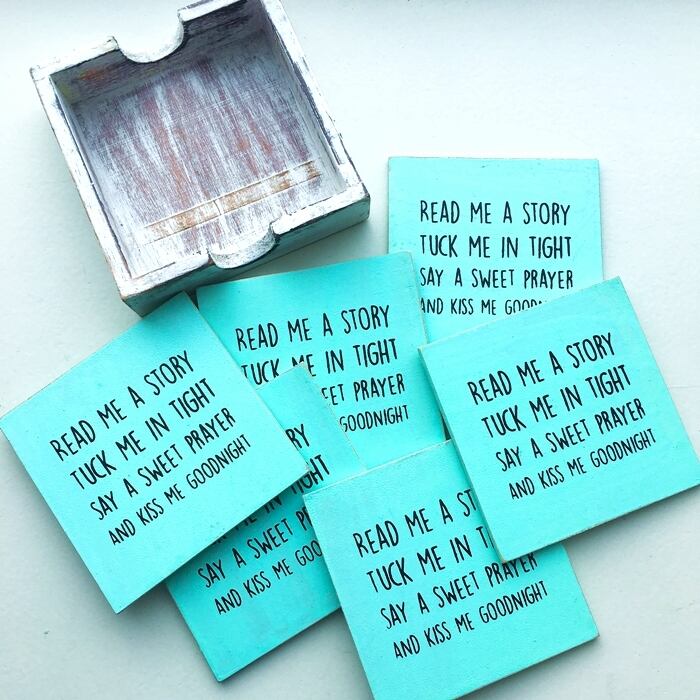 READ ME A STORY
TUCK ME IN TIGHT
SAY A SWEET PRAYER
AND KISS ME
READ ME A STORY
TUCK ME IN TIGHT
PRAYER
GOODNIGHT
READ ME A STORY
TUCK ME IN TIGHT
SAY A SWEET PRAYER
AND KISS ME GOODNIGHT
READ ME A STORY
TUCK ME IN TIGHT
SAY A SWEET PRAYER
AND KISS ME GOODNIGHT
SAY A SWEET
AND KISS ME
READ ME A
TUCK ME IN
SAY A SWEET PRAYER
AND KISS ME GOODNIGHT